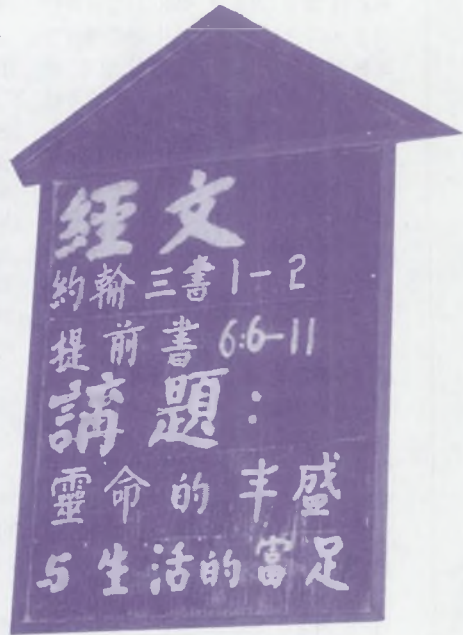 經文
約翰三書1-2
提前書 6:6-11
講題:
靈命的丰盛
与生活的富足